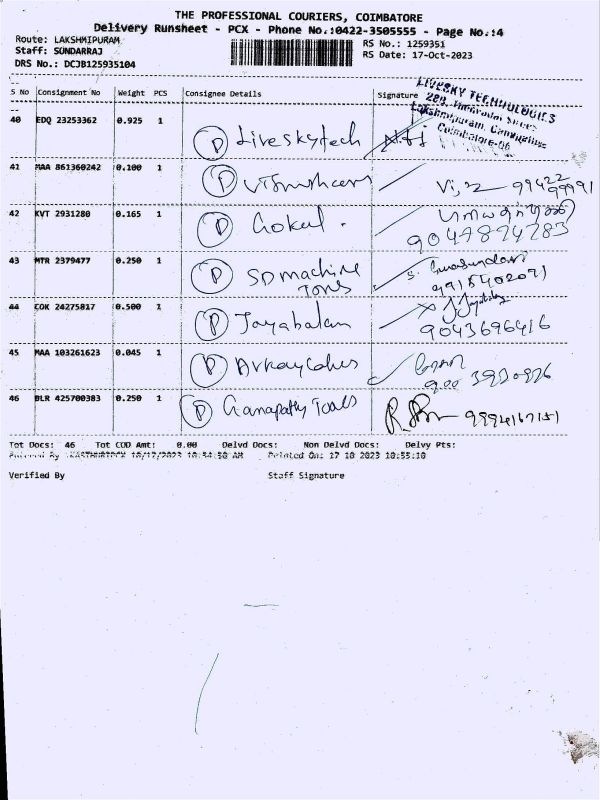 THE PROFESSIONAL COURIERS, COIMBATORE
Delivery Runsheet - PCX - Phone No.:0422-3505555 - Page No.:4
Route: LAKSHMIPURAM
RS No.: 1259351
Staff: SUNDARRAJ
RS Date: 17-Oct-2023
DRS No.: DCJB125935104
S No Consignment No Weight PCS Consignee Details Signature
LIVESKY TECHNOLOGIES
Lakshmipuram,
Coimbatore-06
40 EDQ 23253362 0.925 1 P Liveskytech
41 MAA 861360242 0.100 1 P 99422 99991
42 KVT 2931280 0.165 1 P Gokul.
9047874783
43 MTR 2379477 0.250 1 P SD machine Tools
9915402071
44 COK 24275817 0.500 1 P Jayabalan
9043696416
45 MAA 103261623 0.045 1 P
46 BLR 425700383 0.250 1 P Ganapathy Tools 9994167151
Tot Docs: 46 Tot COD Amt: 0.00 Delvd Docs: Non Delvd Docs: Delvy Pts:
10/17/2023 10:54:30 AM Printed On: 17 10 2023 10:55:10
Verified By Staff Signature